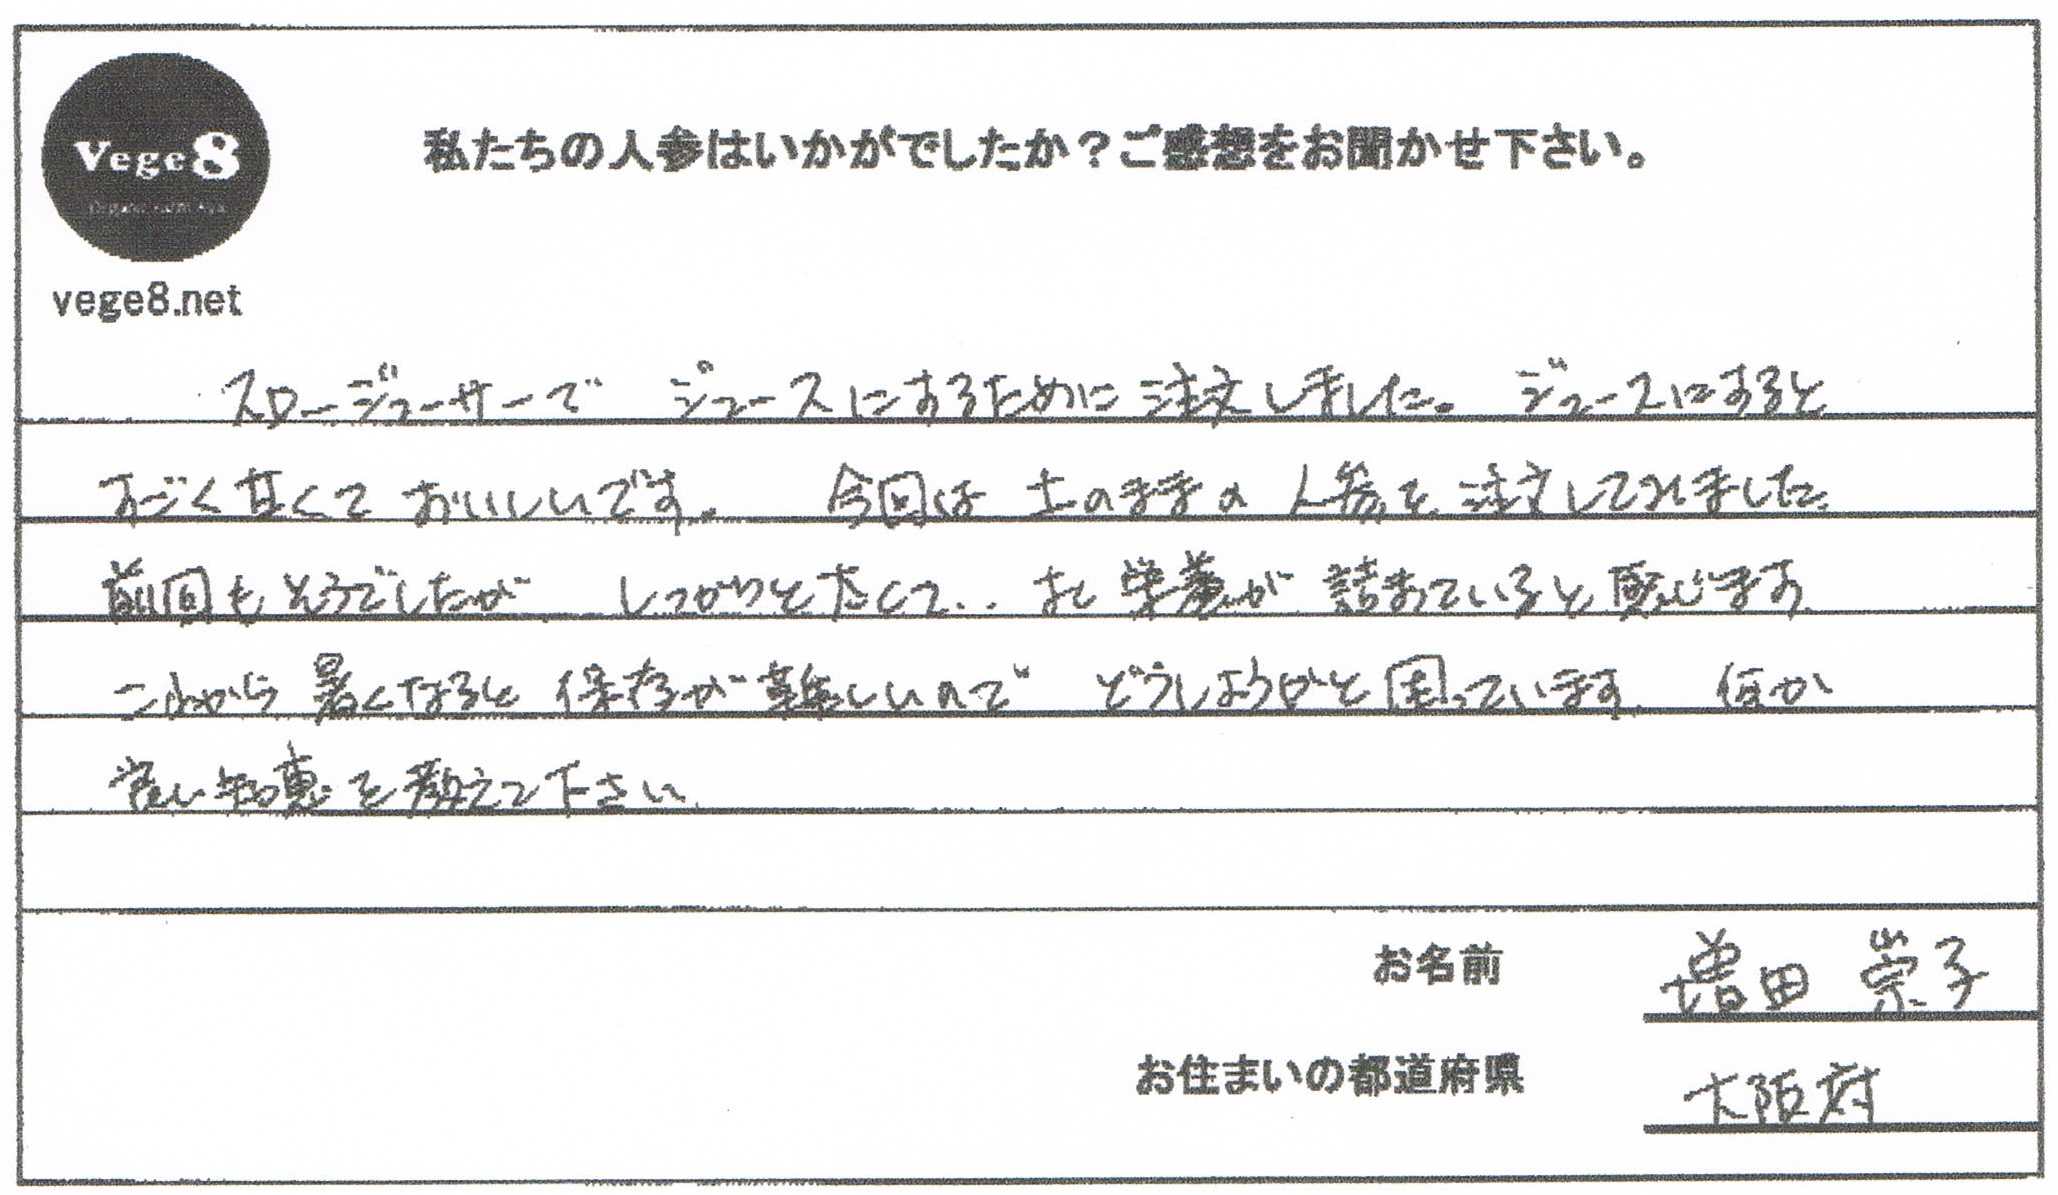 Vege8
私たちの人参はいかがでしたか？ご感想をお聞かせ下さい。
vege8.net
スロージューサーで ジュースにするために注文しました。 ジュースにすると
すごく甘くておいしいです。 今回は 土のままの人参を注文してみました。
前回もそうでしたが しっかりと太くて.. すぐ栄養が詰まっていると感じます
これから暑くなると保存が難しいので どうしようかと困っています. 何か
良い知恵を教えて下さい.
お名前 増田 崇子
お住まいの都道府県 大阪府